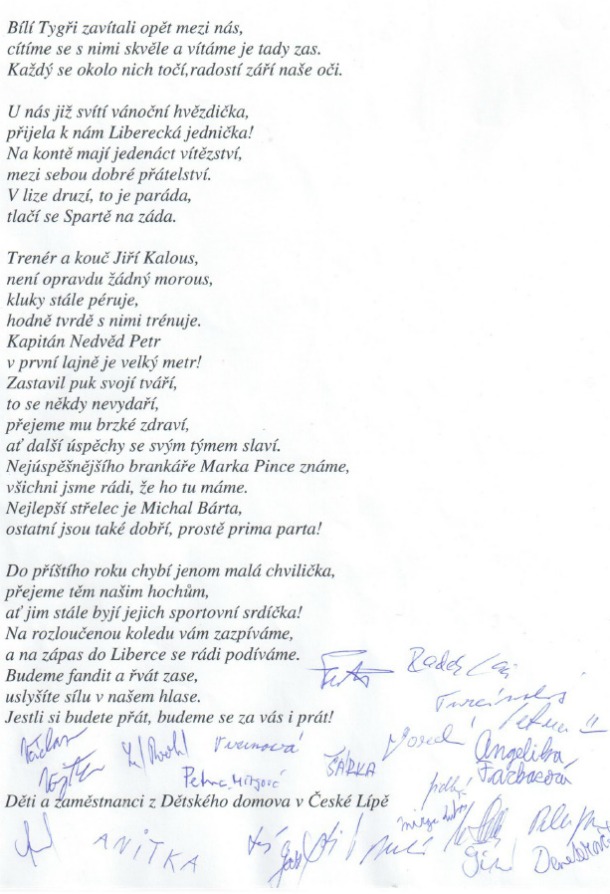 Bílí Tygři zavítali opět mezi nás,
cítíme se s nimi skvěle a vítáme je tady zas.
Každý se okolo nich točí,radostí září naše oči.
U nás již svítí vánoční hvězdička,
přijela k nám Liberecká jednička!
Na kontě mají jedenáct vítězství,
mezi sebou dobré přátelství.
V lize druzí, to je paráda,
tlačí se Spartě na záda.
Trenér a kouč Jiří Kalous,
není opravdu žádný morous,
kluky stále péruje,
hodně tvrdě s nimi trénuje.
Kapitán Nedvěd Petr
v první lajně je velký metr!
Zastavil puk svojí tváří,
to se někdy nevydaří,
přejeme mu brzké zdraví,
ať další úspěchy se svým týmem slaví.
Nejúspěšnějšího brankáře Marka Pince známe,
všichni jsme rádi, že ho tu máme.
Nejlepší střelec je Michal Bárta,
ostatní jsou také dobří, prostě prima parta!
Do příštího roku chybí jenom malá chvilička,
přejeme těm našim hochům,
ať jim stále byjí jejich sportovní srdíčka!
Na rozloučenou koledu vám zazpíváme,
a na zápas do Liberce se rádi podíváme.
Budeme fandit a řvát zase,
uslyšíte sílu v našem hlase.
Jestli si budete přát, budeme se za vás i prát!
Václav
Angelika
ŠÁRKA
Farkasová
Petra
Děti a zaměstnanci z Dětského domova v České Lípě
ANITKA